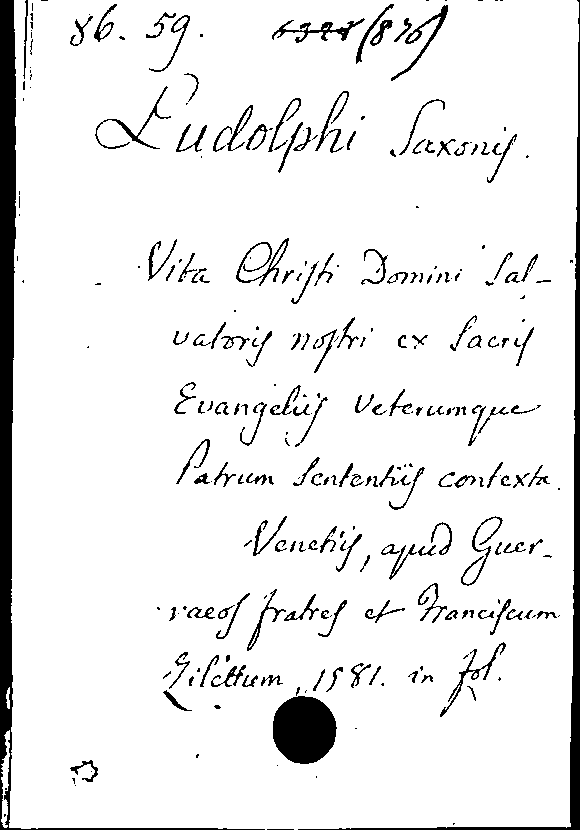 86. 59. 6328 (876)
Ludolphi Saxonis.
Vita Christi Domini Sal-
vatoris nostri ex Sacris
Evangeliis veterumque
Patrum Sententiis contexta.
Venetiis, apud Guer-
raeos fratres et Franciscum
Zilettum, 1581. in fol.